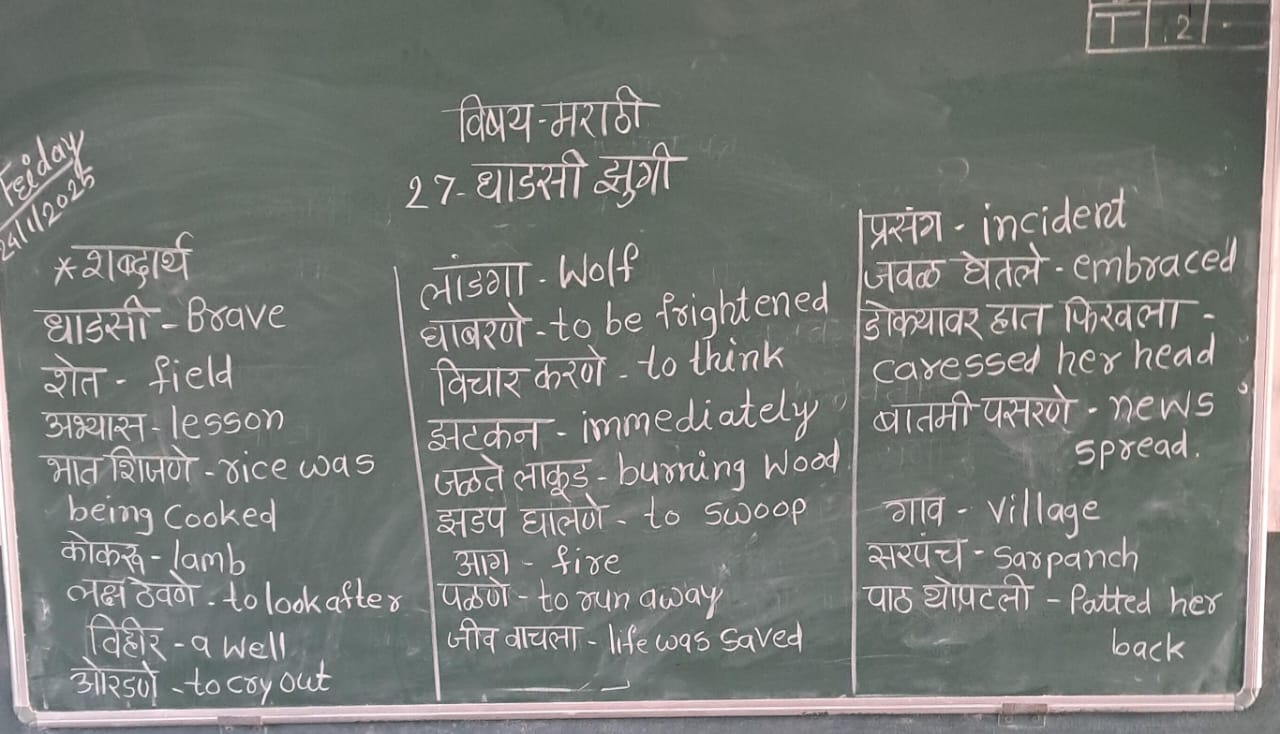 T 2
विषय-मराठी
27-धाडसी झुगी
Friday
24/1/2025
*शब्दार्थ
धाडसी - Brave
शेत - field
अभ्यास - lesson
भात शिजणे - rice was
being cooked
कोकरू - lamb
लक्ष ठेवणे - to look after
विहीर - a well
ओरडणे - to cry out
लांडगा - Wolf
घाबरणे - to be frightened
विचार करणे - to think
झटकन - immediately
जळते लाकूड - burning wood
झडप घालणे - to swoop
आग - fire
पळणे - to run away
जीव वाचला - life was saved
प्रसंग - incident
जवळ घेतले - embraced
डोक्यावर हात फिरवला -
caressed her head
बातमी पसरणे - news
spread.
गाव - village
सरपंच - Sarpanch
पाठ थोपटली - Patted her
back